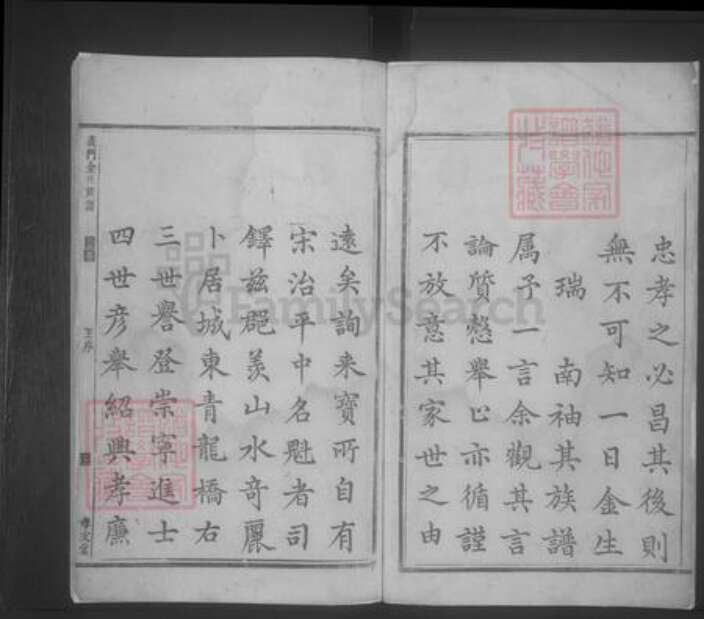 忠孝之必昌其後則
無不可知一日金生
瑞 南袖其族譜
属予一言余觀其言
論質慤舉止亦循謹
不放意其家世之由
遠矣詢来寶所自有
宋治平中名魁者司
鐸兹邑羡山水奇麗
卜居城東青龍橋右
三世譽登崇寧進士
四世彦舉紹興孝廉
王序
孝友堂
FamilySearch